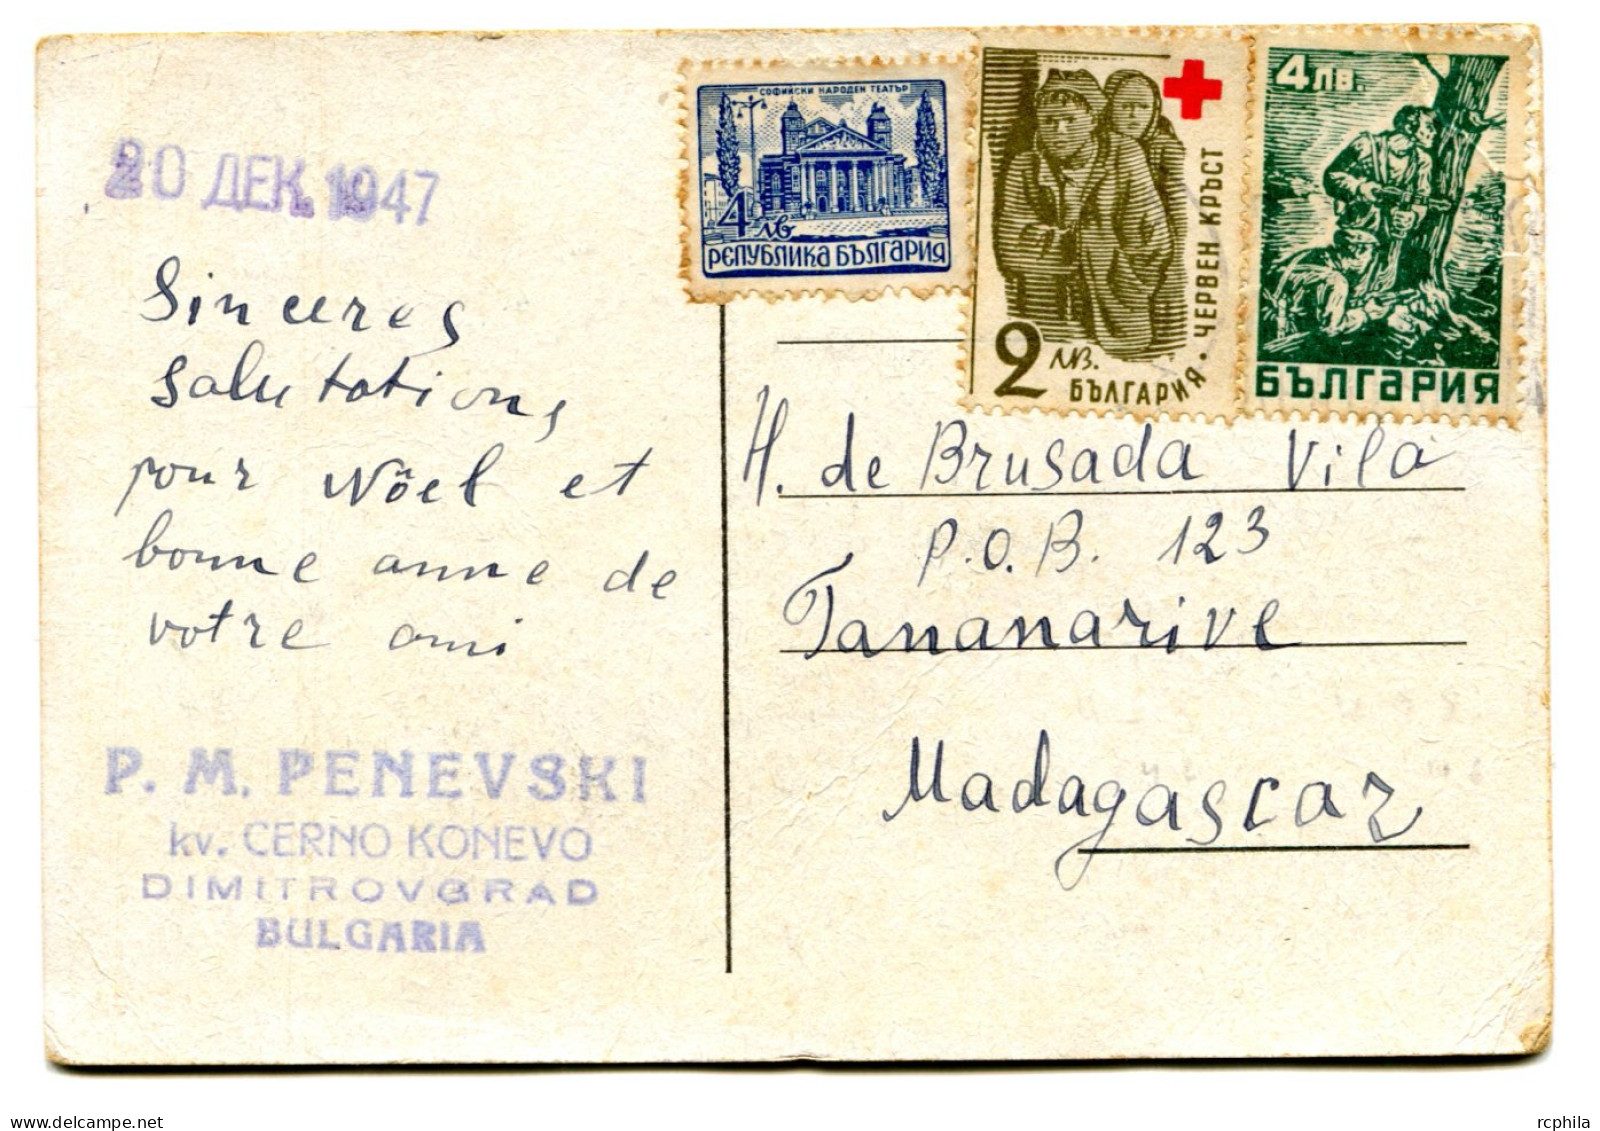 20 ДЕК. 1947
Sinceres
Salutations
pour Nöel et
bonne anne de
votre ami
P. M. PENEVSKI
kv. CERNO KONEVO
DIMITROVGRAD
BULGARIA
СОФИЙСКИ НАРОДЕН ТЕАТЪР
4 лв
РЕПУБЛИКА БЪЛГАРИЯ
2 лв.
БЪЛГАРИЯ · ЧЕРВЕН КРЪСТ
4 лв.
БЪЛГАРИЯ
H. de Brusada Vila
P.O.B. 123
Tananarive
Madagascar
www.delcampe.net
rcphila